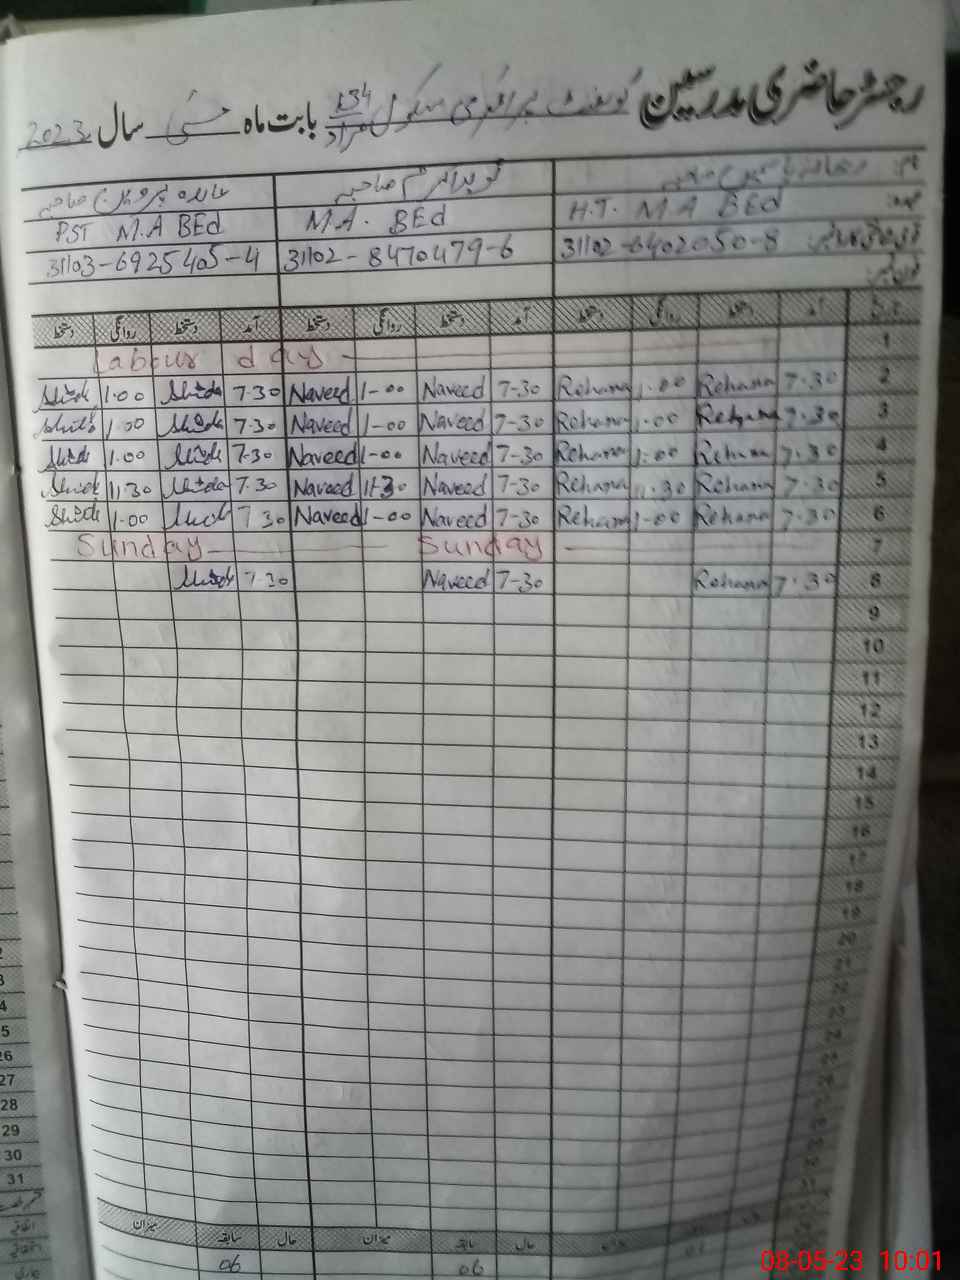 رجسٹر حاضری مدرسین گورنمنٹ پرائمری سکول 134 مراد بابت ماہ مئی سال 2023
نام: ریحانہ یاسمین صاحبہ نوید انجم صاحبہ پروین صاحبہ
عہدہ: H.T. M A BEd M.A. BEd PST M.A BEd
قومی شناختی کارڈ نمبر: 31102-6402050-8 31102-8470479-6 31103-6925405-4
فون نمبر:
تاریخ آمد دستخط روانگی دستخط آمد دستخط روانگی دستخط آمد دستخط روانگی دستخط
1 Labour day
2 7.30 Rehana 1.00 Rehana 7-30 Naveed 1-00 Naveed 7.30 1.00
3 7.30 Rehana 1.00 Rehana 7-30 Naveed 1-00 Naveed 7.30 1.00
4 7.30 Rehana 1.00 Rehana 7-30 Naveed 1-00 Naveed 7.30 1.00
5 7.30 Rehana 11.30 Rehana 7-30 Naveed 11-30 Naveed 7.30 11.30
6 7.30 Rehana 1-00 Rehana 7-30 Naveed 1-00 Naveed 7.30 1.00
7 Sunday Sunday
8 7.30 Rehana 7-30 Naveed 7.30
9
10
11
12
13
14
15
16
17
18
19
20
21
22
23
24
25
26
حال سابقہ میزان حال سابقہ میزان
06 06
5
26
27
28
29
30
31
08-05-23 10:01